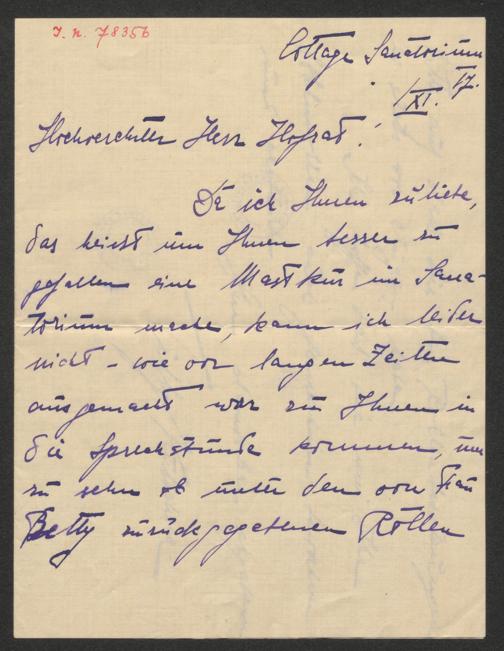 I. n. 78356
Cottage Sanatorium
1/XI. 17.
Hochverehrter Herr Hofrat!
Da ich Ihnen zuliebe,
das heisst um Ihnen besser zu
gefallen eine Mastkur im Sana-
torium mache, kann ich leider
nicht - wie vor langen Zeiten
ausgemacht war zu Ihnen in
die Sprechstunde kommen, um
zu sehn ob unter den von Frau
Betty zurückgegebenen Rollen